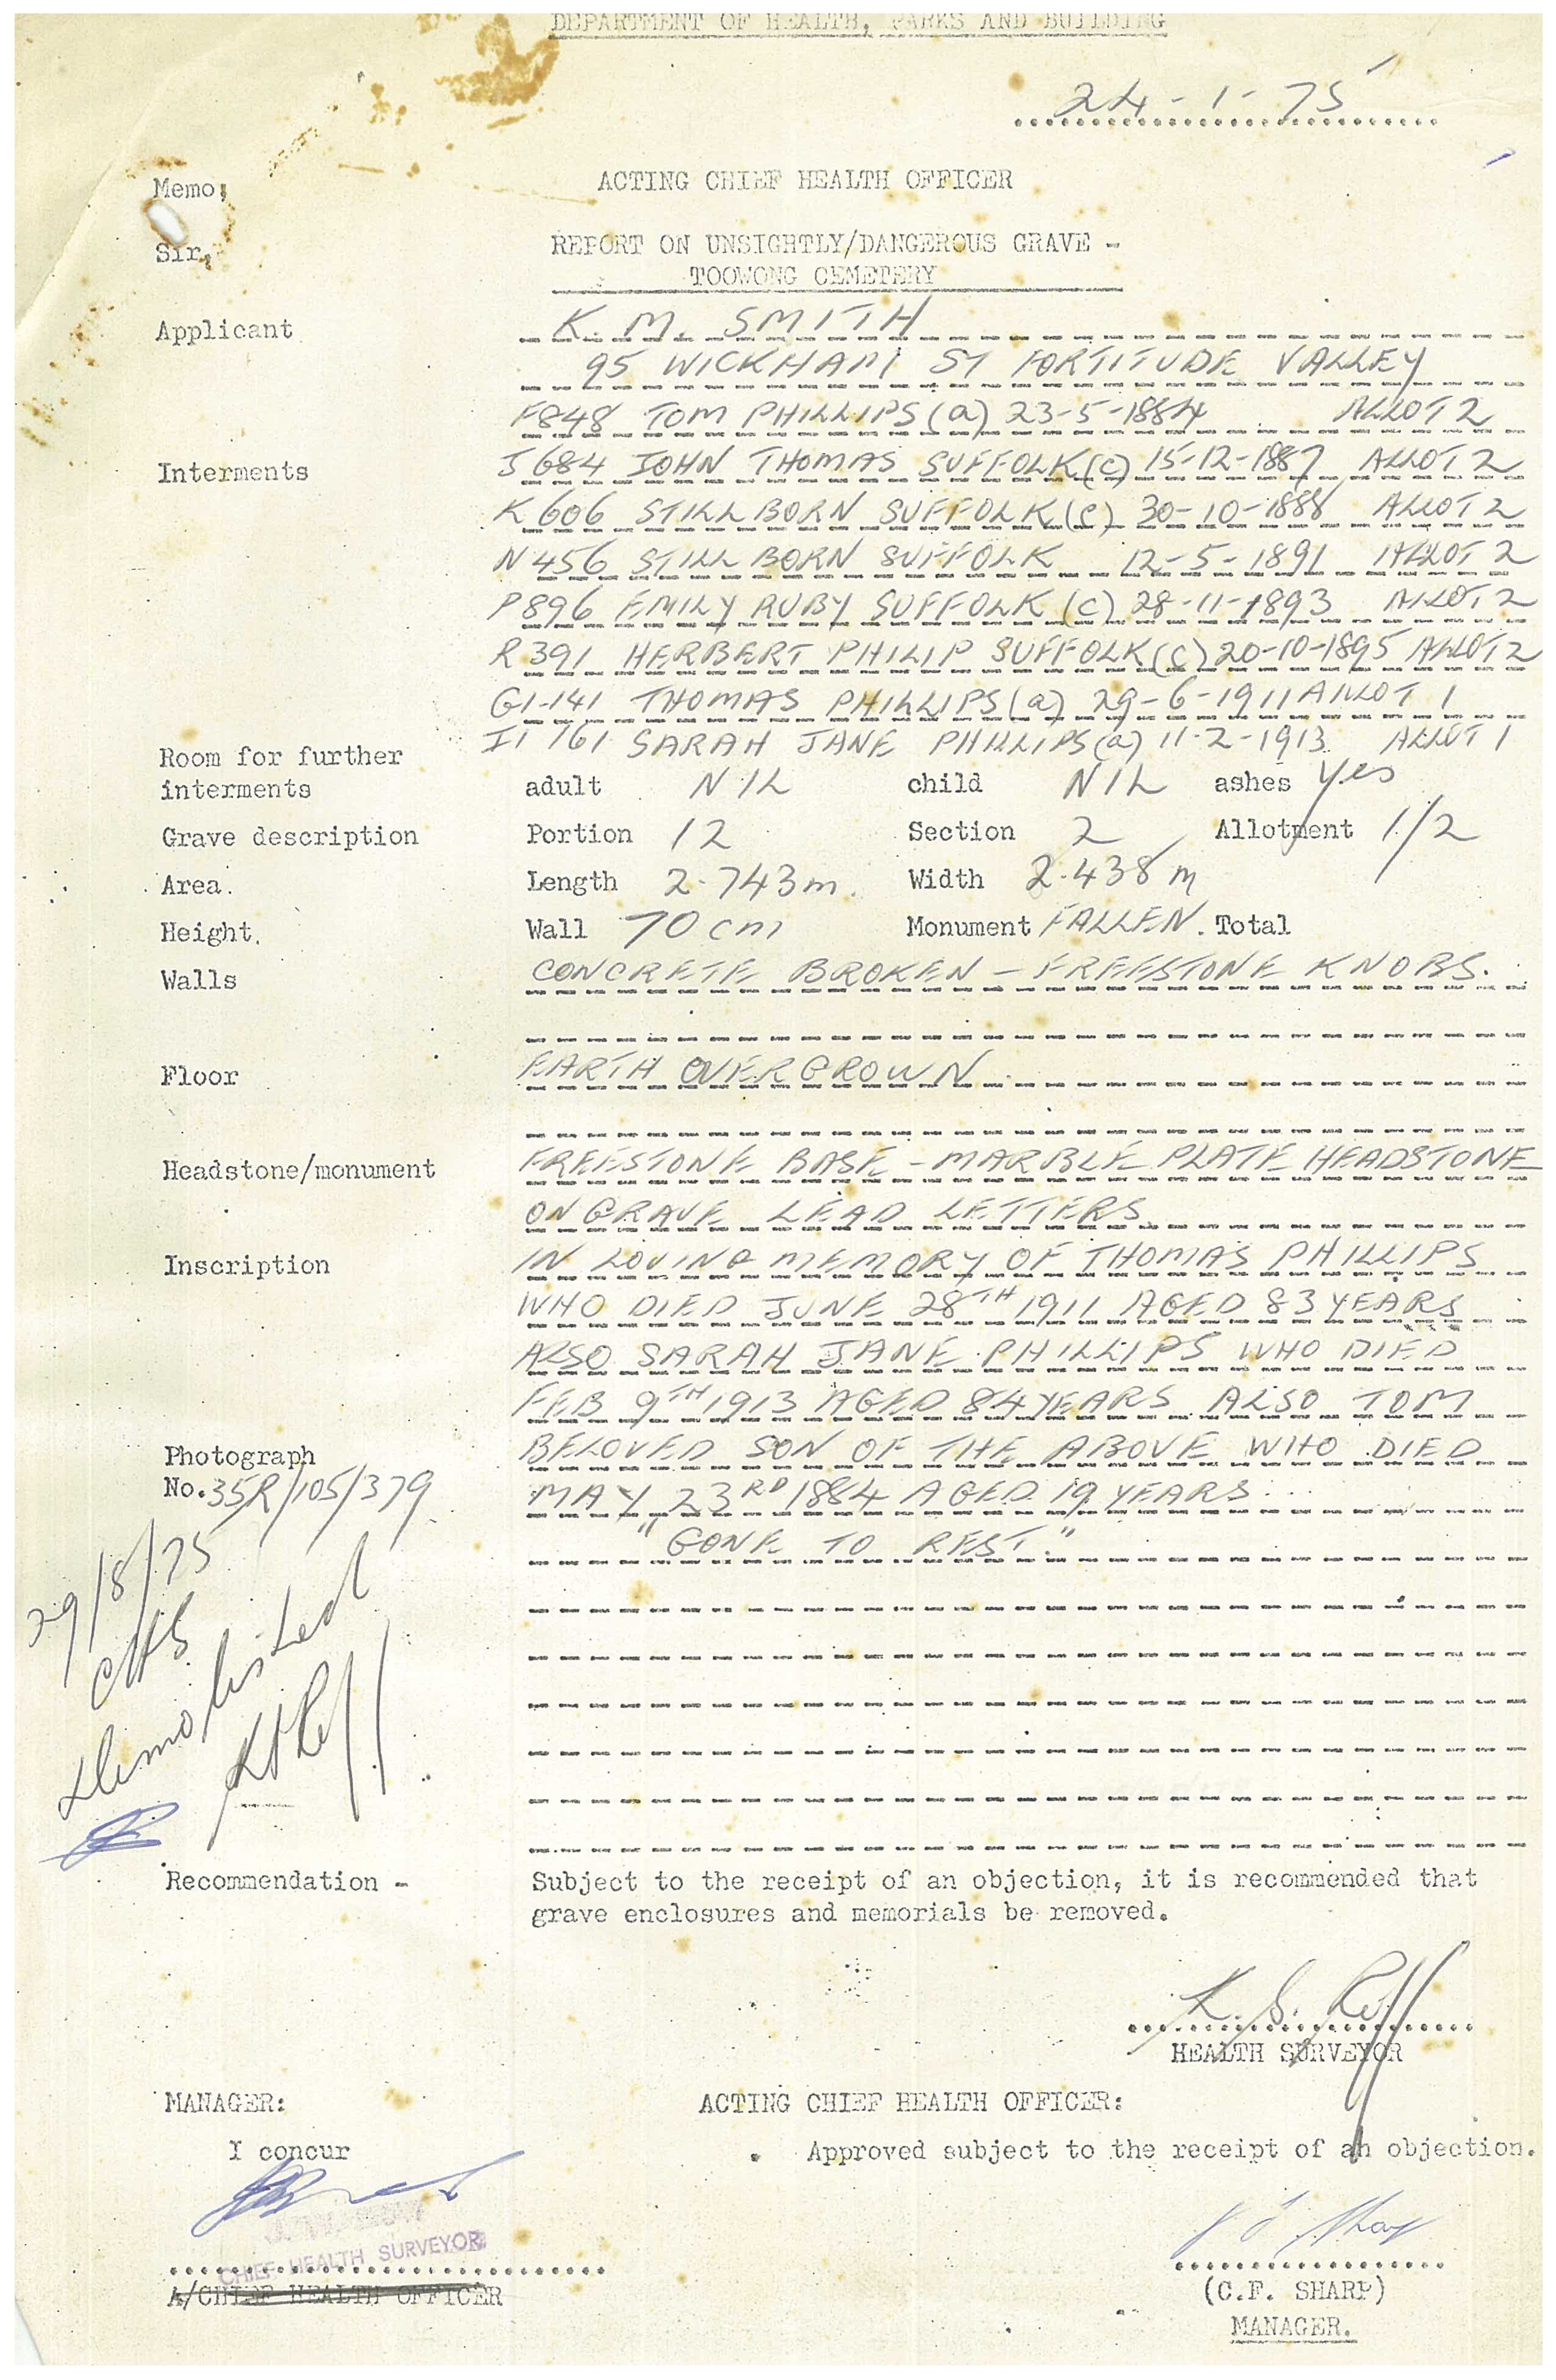 DEPARTMENT OF HEALTH, PARKS AND BUILDING
24-1-75
Memo;
ACTING CHIEF HEALTH OFFICER
Sir,
REPORT ON UNSIGHTLY/DANGEROUS GRAVE -
TOOWONG CEMETERY
Applicant K. M. SMITH
95 WICKHAM ST FORTITUDE VALLEY
F848 TOM PHILLIPS (a) 23-5-1884 ALLOT 2
Interments J684 JOHN THOMAS SUFFOLK (C) 15-12-1887 ALLOT 2
K606 STILLBORN SUFFOLK (C) 30-10-1888 ALLOT 2
N456 STILLBORN SUFFOLK 12-5-1891 ALLOT 2
P896 EMILY RUBY SUFFOLK (C) 28-11-1893 ALLOT 2
R391 HERBERT PHILIP SUFFOLK (C) 20-10-1895 ALLOT 2
G1-141 THOMAS PHILLIPS (a) 29-6-1911 ALLOT 1
I1 761 SARAH JANE PHILLIPS (a) 11-2-1913 ALLOT 1
Room for further
interments adult NIL child NIL ashes yes
Grave description Portion 12 Section 2 Allotment 1/2
Area. Length 2.743m. Width 2.438m
Height. Wall 70cm Monument FALLEN. Total
Walls CONCRETE BROKEN - FREESTONE KNOBS.
Floor EARTH OVERGROWN
Headstone/monument FREESTONE BASE - MARBLE PLATE HEADSTONE
ON GRAVE LEAD LETTERS
Inscription IN LOVING MEMORY OF THOMAS PHILLIPS
WHO DIED JUNE 28TH 1911 AGED 83 YEARS
ALSO SARAH JANE PHILLIPS WHO DIED
FEB 9TH 1913 AGED 84 YEARS ALSO TOM
Photograph BELOVED SON OF THE ABOVE WHO DIED
No. 35R/105/379 MAY 23RD 1884 AGED 19 YEARS
"GONE TO REST."
29/8/75
CHS
demolished
Recommendation - Subject to the receipt of an objection, it is recommended that
grave enclosures and memorials be removed.
HEALTH SURVEYOR
MANAGER: ACTING CHIEF HEALTH OFFICER:
I concur Approved subject to the receipt of an objection.
CHIEF HEALTH SURVEYOR
A/CHIEF HEALTH OFFICER
(C.F. SHARP)
MANAGER.